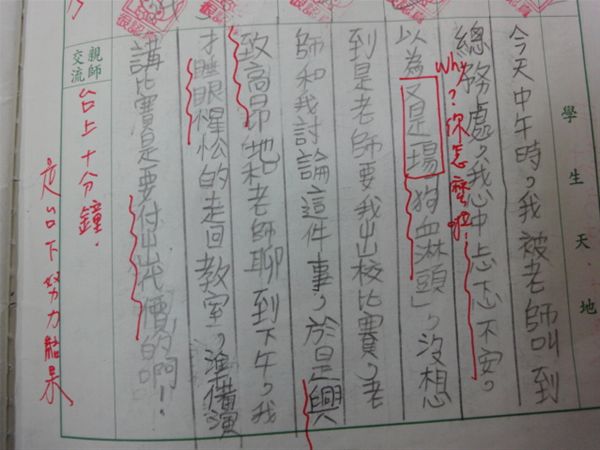 學生天地
今天中午時，我被老師叫到
總務處，我心中忐忑不安。
Why? 你怎麼啦!
以為又是場狗血淋頭」，沒想
到是老師要我出校比賽，老
師和我討論這件事，於是興
致高昂地和老師聊到下午，我
才睡眼惺忪的走回教室，準備演
講比賽是要付出代價的啊!
親師
交流
台上十分鐘.
台下努力